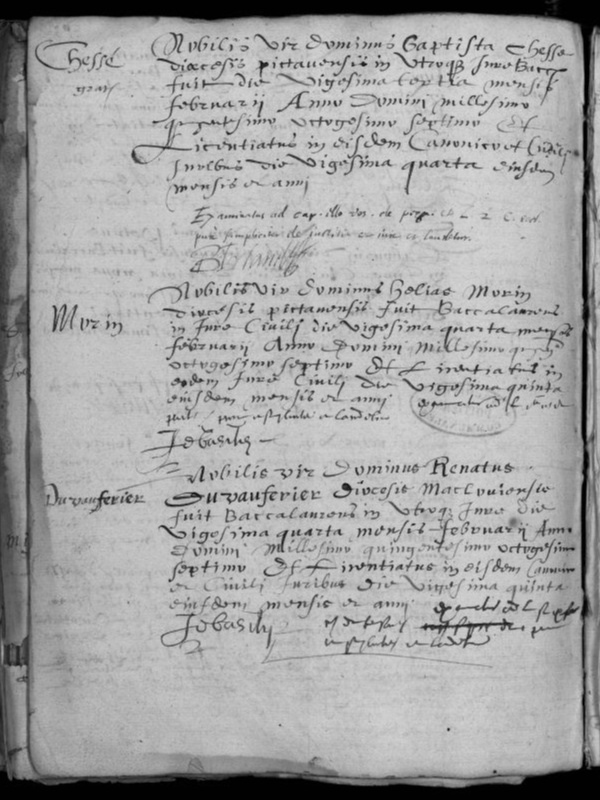 Chesse
Nobilis vir dominus Baptista Chesse
diocesis pictavensis in utroque Jure Bacc
fuit die vigesima tertia mensis
februarii Anno domini millesimo
quingentesimo octogesimo septimo Et
Licentiatus in eisdem Canonico et Civili
Juribus die vigesima quarta eiusdem
mensis et anni
Examinatus ad cap.
pure simpliciter de justitia et
Morin
Nobilis vir dominus Helias Morin
diocesis pictavensis fuit Baccalaureus
in Jure Civili die vigesima quarta mensis
februarii Anno Domini Millesimo quingen
octogesimo septimo Et Licentiatus in
eodem Jure Civili die vigesima quinta
eiusdem mensis et anni
Duvauferier
Nobilis vir Dominus Renatus
Duvauferier diocesis Maclouiensis
fuit Baccalaureus in utroque Jure die
vigesima quarta mensis februarii Anno
domini Millesimo quingentesimo octogesimo
septimo Et Licentiatus in eisdem Canonico
et Civili Juribus die vigesima quinta
eiusdem mensis et anni